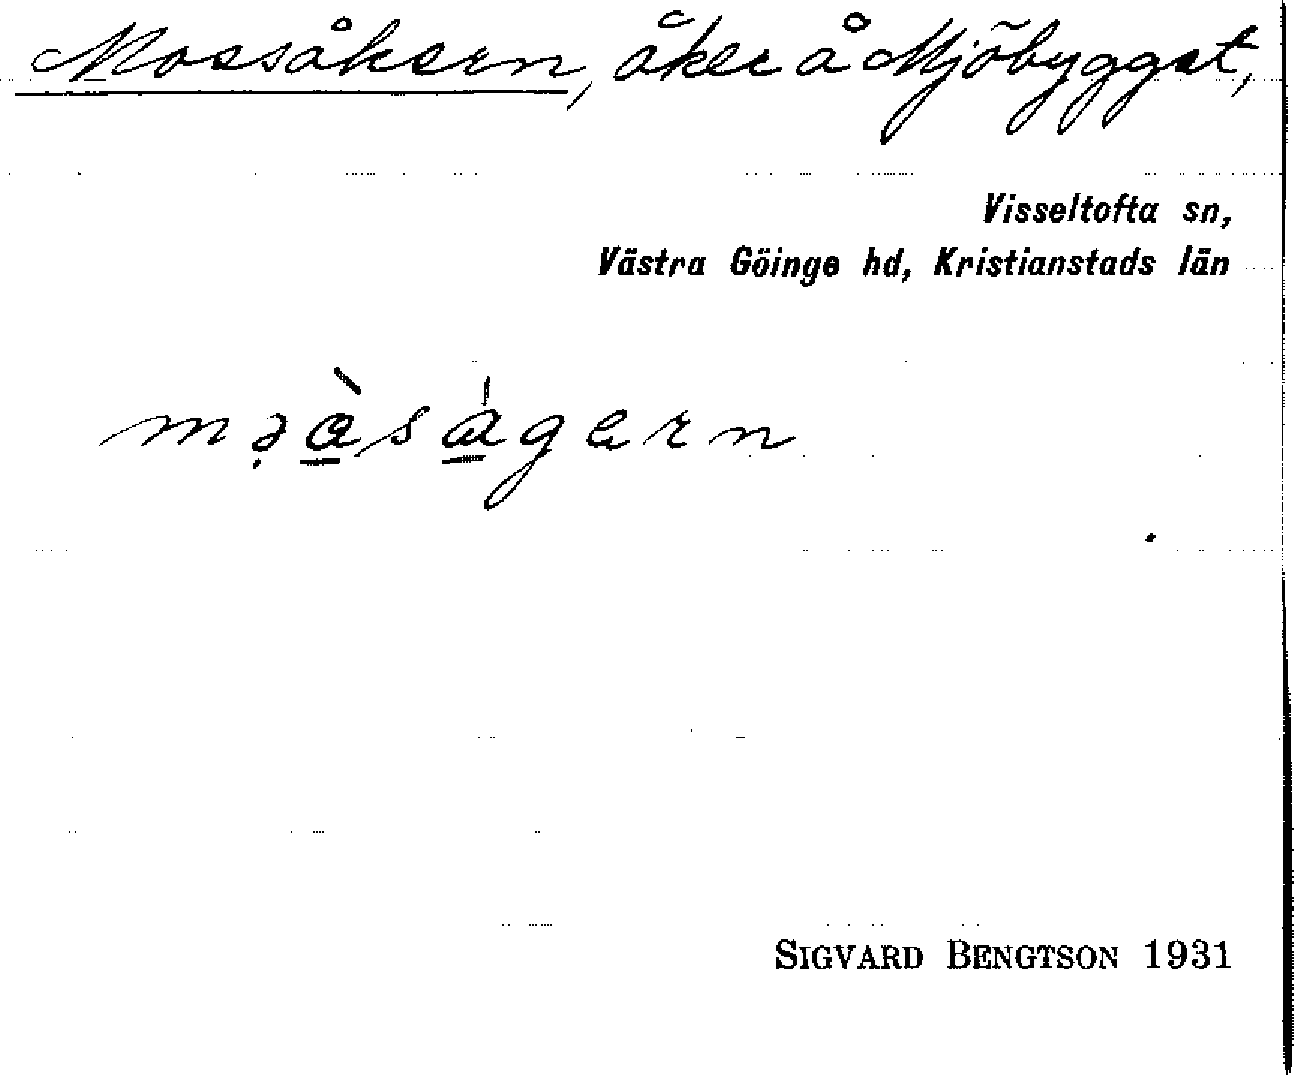 Mossåkern, åker å Mjöbygget,
Visseltofta sn,
Västra Göinge hd, Kristianstads län
SIGVARD BENGTSON 1931